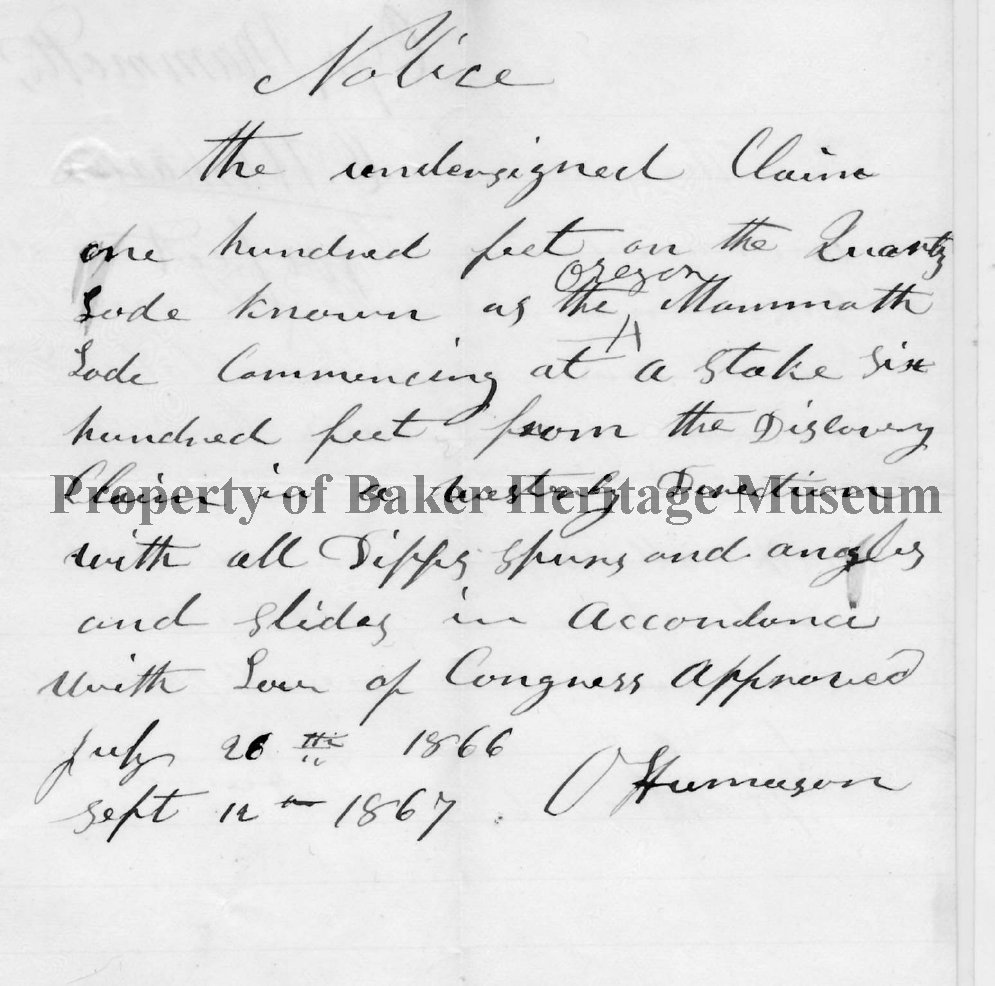 Notice
the undersigned Claim
one hundred feet on the Quartz
Oregon
Lode known as the ^ Mammoth
Lode Commencing at a stake six
hundred feet from the Discovery
Claim in a westerly Direction
Property of Baker Heritage Museum
with all Dipps spurs and angles
and slides in Accordance
with Law of Congress Approved
July 26 th 1866
O Humason
Sept 12 1867